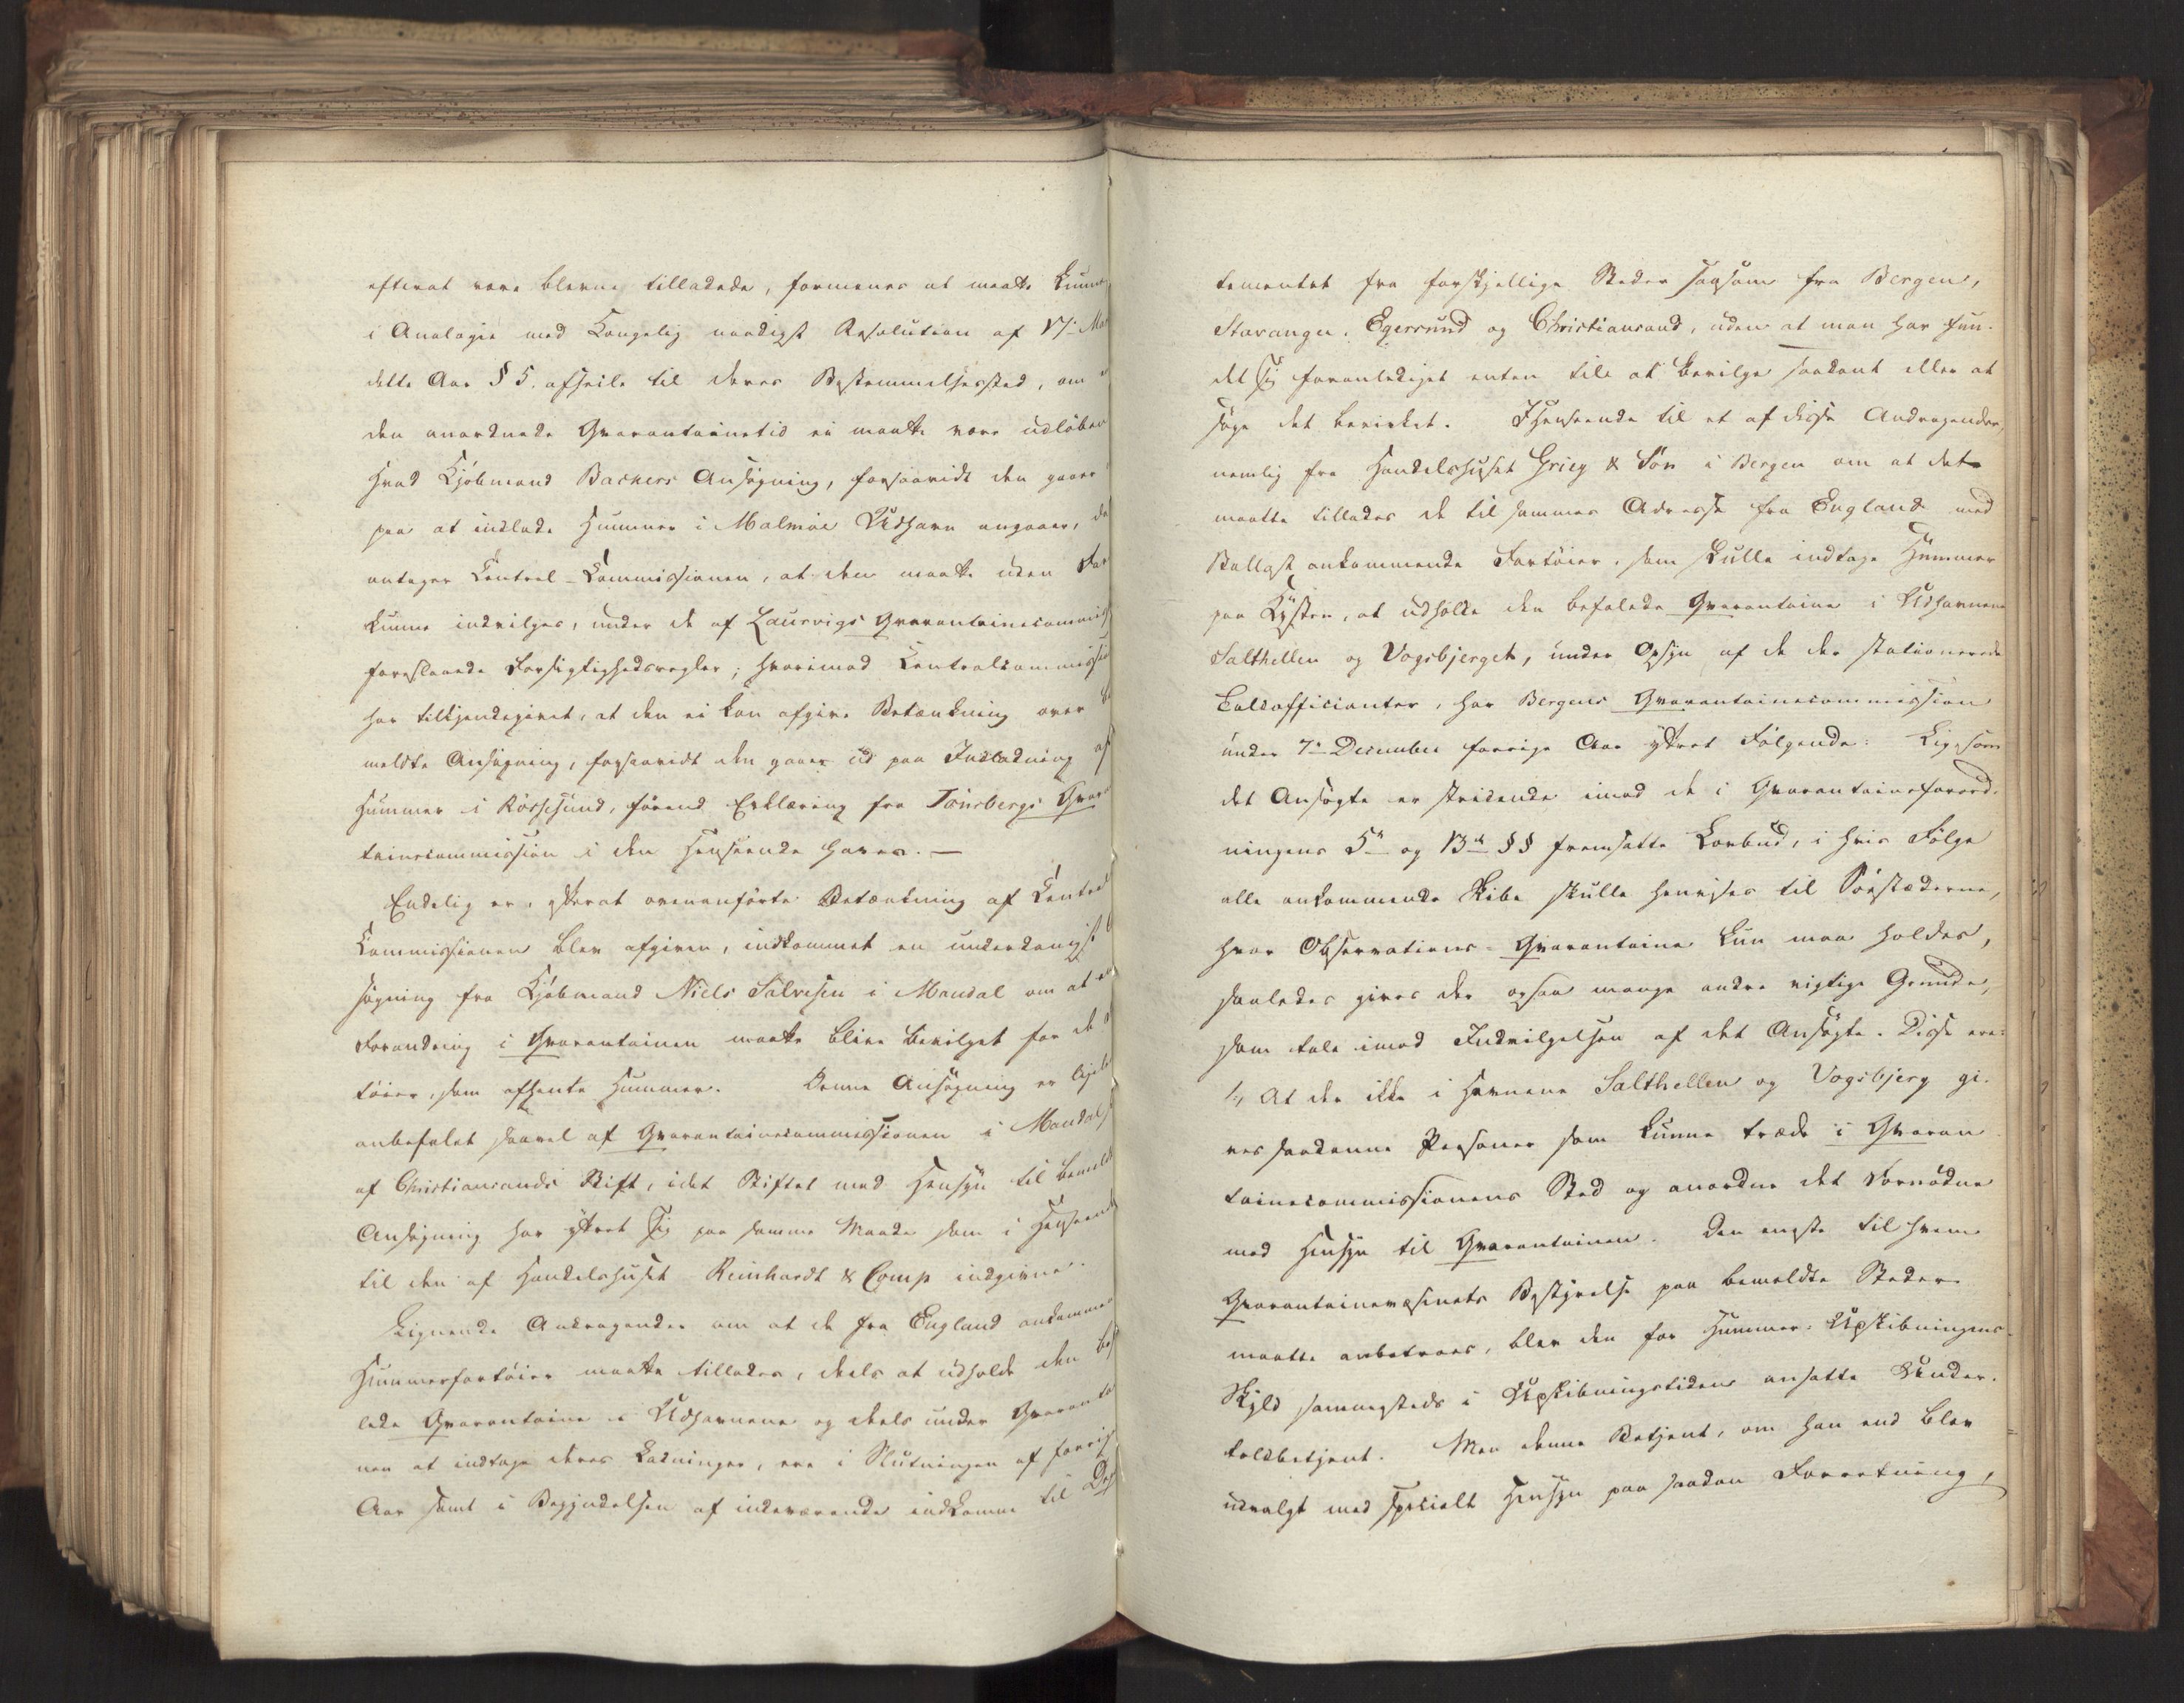 efterat være blevne tilladede, formenes at maatte kunne
i Analogie med Kongelig naadigst Resolution af 17de Mai
dette Aar § 5. afseile til deres Bestemmelsessted, om
den anordnede Qvarantainetid ei maatte være udløben
Hvad Kjøbmand Backers Ansøgning, forsaavidt den gaaer
paa at indlade Hummer i Malmøe Udhavn angaaer, da
antager Central-Commissionen, at den maatte uden Fare
kunne indvilges, under de af Laurvigs Qvarantainecommis
foreslaaede Forsigtighedsregler; hvorimod Centralcommissio
har tilkjendegivet, at den ei kan afgive Betænkning over be
meldte Ansøgning, forsaavidt den gaaer ud paa Indladning af
Hummer i Røssesund, førend Erklæring fra Tønsbergs Qvar
tainecommission i den Henseende haves. —
Endelig er, efterat ovenanførte Betænkning af Central
Commissionen blev afgiven, indkommet en underdanigst
søgning fra Kjøbmand Niels Salvesen i Mandal om at en
Forandring i Qvarantainen maatte blive bevilget for de
tøier, som afhente Hummer. Denne Ansøgning er
anbefalet saavel af Qvarantainecommissionen i Mandal
af Christiansands Stift, idet Stiftet med Hensyn til bemeldte
Ansøgning har yttret sig paa samme Maade som i Henseende
til den af Handelshuset Reinhardt & Comp indgivne.
Lignende Andragender om at de fra England ankomme
Hummerfartøier maatte tillades, deels at udholde den bef
lede Qvarantaine i Udhavnene og deels under Qvaranta
nen at indtage deres Ladninger, ere i Slutningen af forrige
Aar samt i Begyndelsen af indeværende indkomne til Dep
tementet fra forskjellige Steder saasom fra Bergen,
Stavanger, Egersund og Christiansand, uden at man har fun-
det sig foranlediget enten til at bevilge saadant eller at
søge det bevirket. I Henseende til et af disse Andragender,
nemlig fra Handelshuset Grieg & Søn i Bergen om at det
maatte tillades de til sammes Adresse fra England med
Ballast ankommende Fartøier, som skulle indtage Hummer
paa Kysten, at udholde den befalede Qvarantaine i Udhavnene
Salthellen og Vogsbjerget, under Opsyn af de der stationerede
Toldofficianter, har Bergens Qvarantainecommission
under 7de December forrige Aar yttret Følgende: Ligesom
det Ansøgte er stridende imod de i Qvarantaineforord-
ningens 5te og 13de §§ fremsatte Lovbud, i hvis Følge
alle ankommende Skibe skulle henvises til Søestæderne,
hvor Observations-Qvarantaine kun maa holdes,
saaledes gives der ogsaa mange andre vigtige Grunde,
som tale imod Indvilgelsen af det Ansøgte. Disse ere:
1, At der ikke i Havnene Salthellen og Vogsbjerg gi-
ves saadanne Personer som kunne træde i Qvaran
tainecommissionens Sted og anordne det Fornødne
med Hensyn til Qvarantainen. Den eneste til hvem
Qvarantainevæsenets Bestyrelse paa bemeldte Steder
maatte anbetroes, blev den for Hummer-Udskibningens
Skyld sammesteds i Udskibningstiden ansatte Under-
toldbetjent. Men denne Betjent, om han end blev
udvalgt med specielt Hensyn paa saadan Forretning,